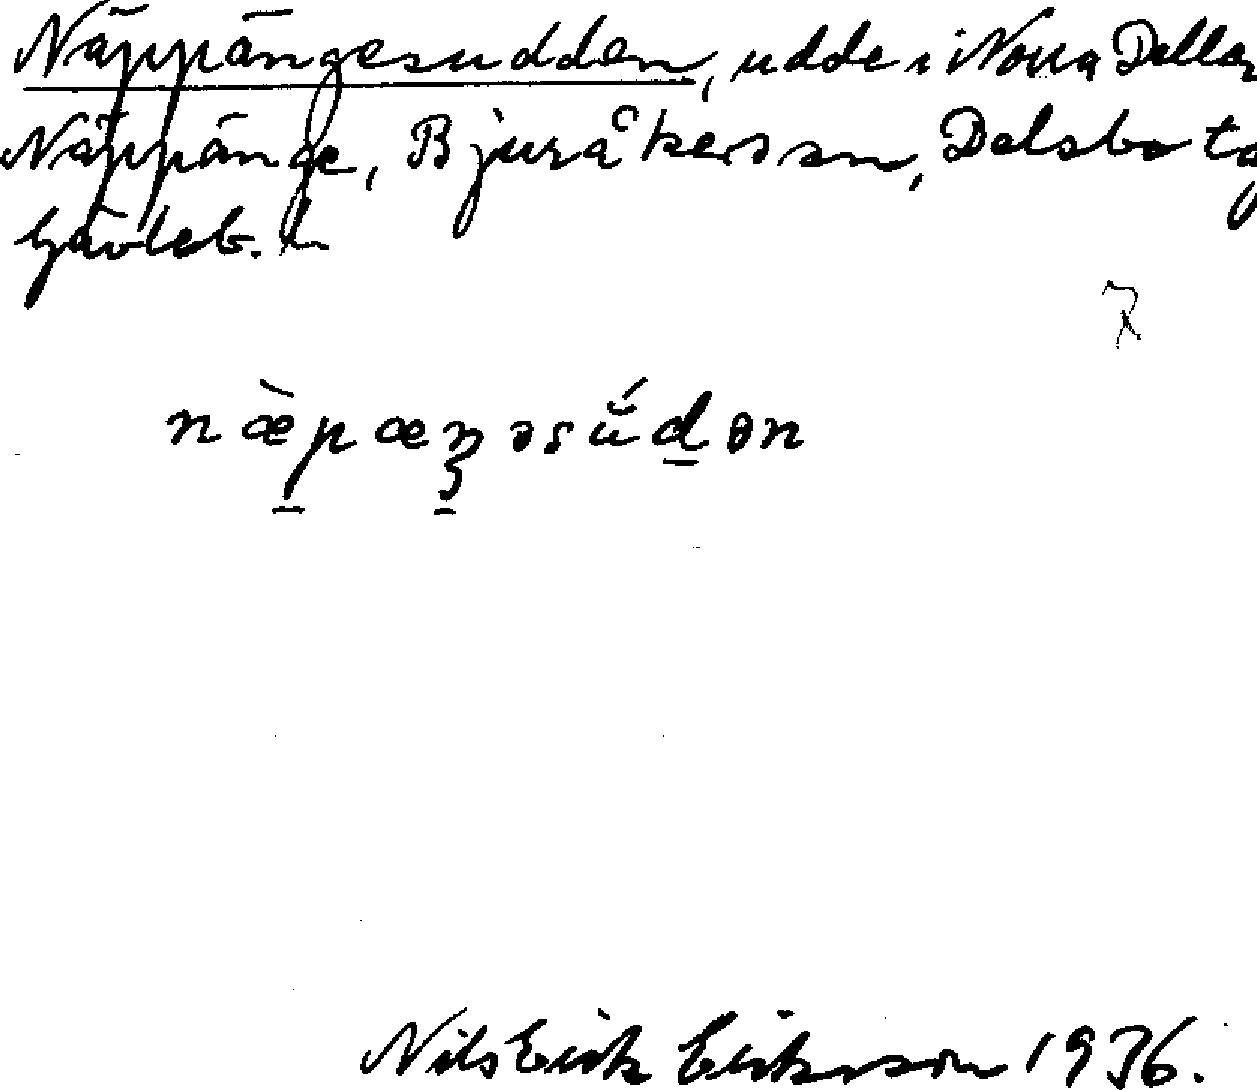 Näppängesudden, udde i Norra Dellen
Näppänge, Bjuråkers sn, Delsbo tg
Gävleb. l.
næ̀pæŋəsŭ́dən
Nils Erik Eriksson 1936.